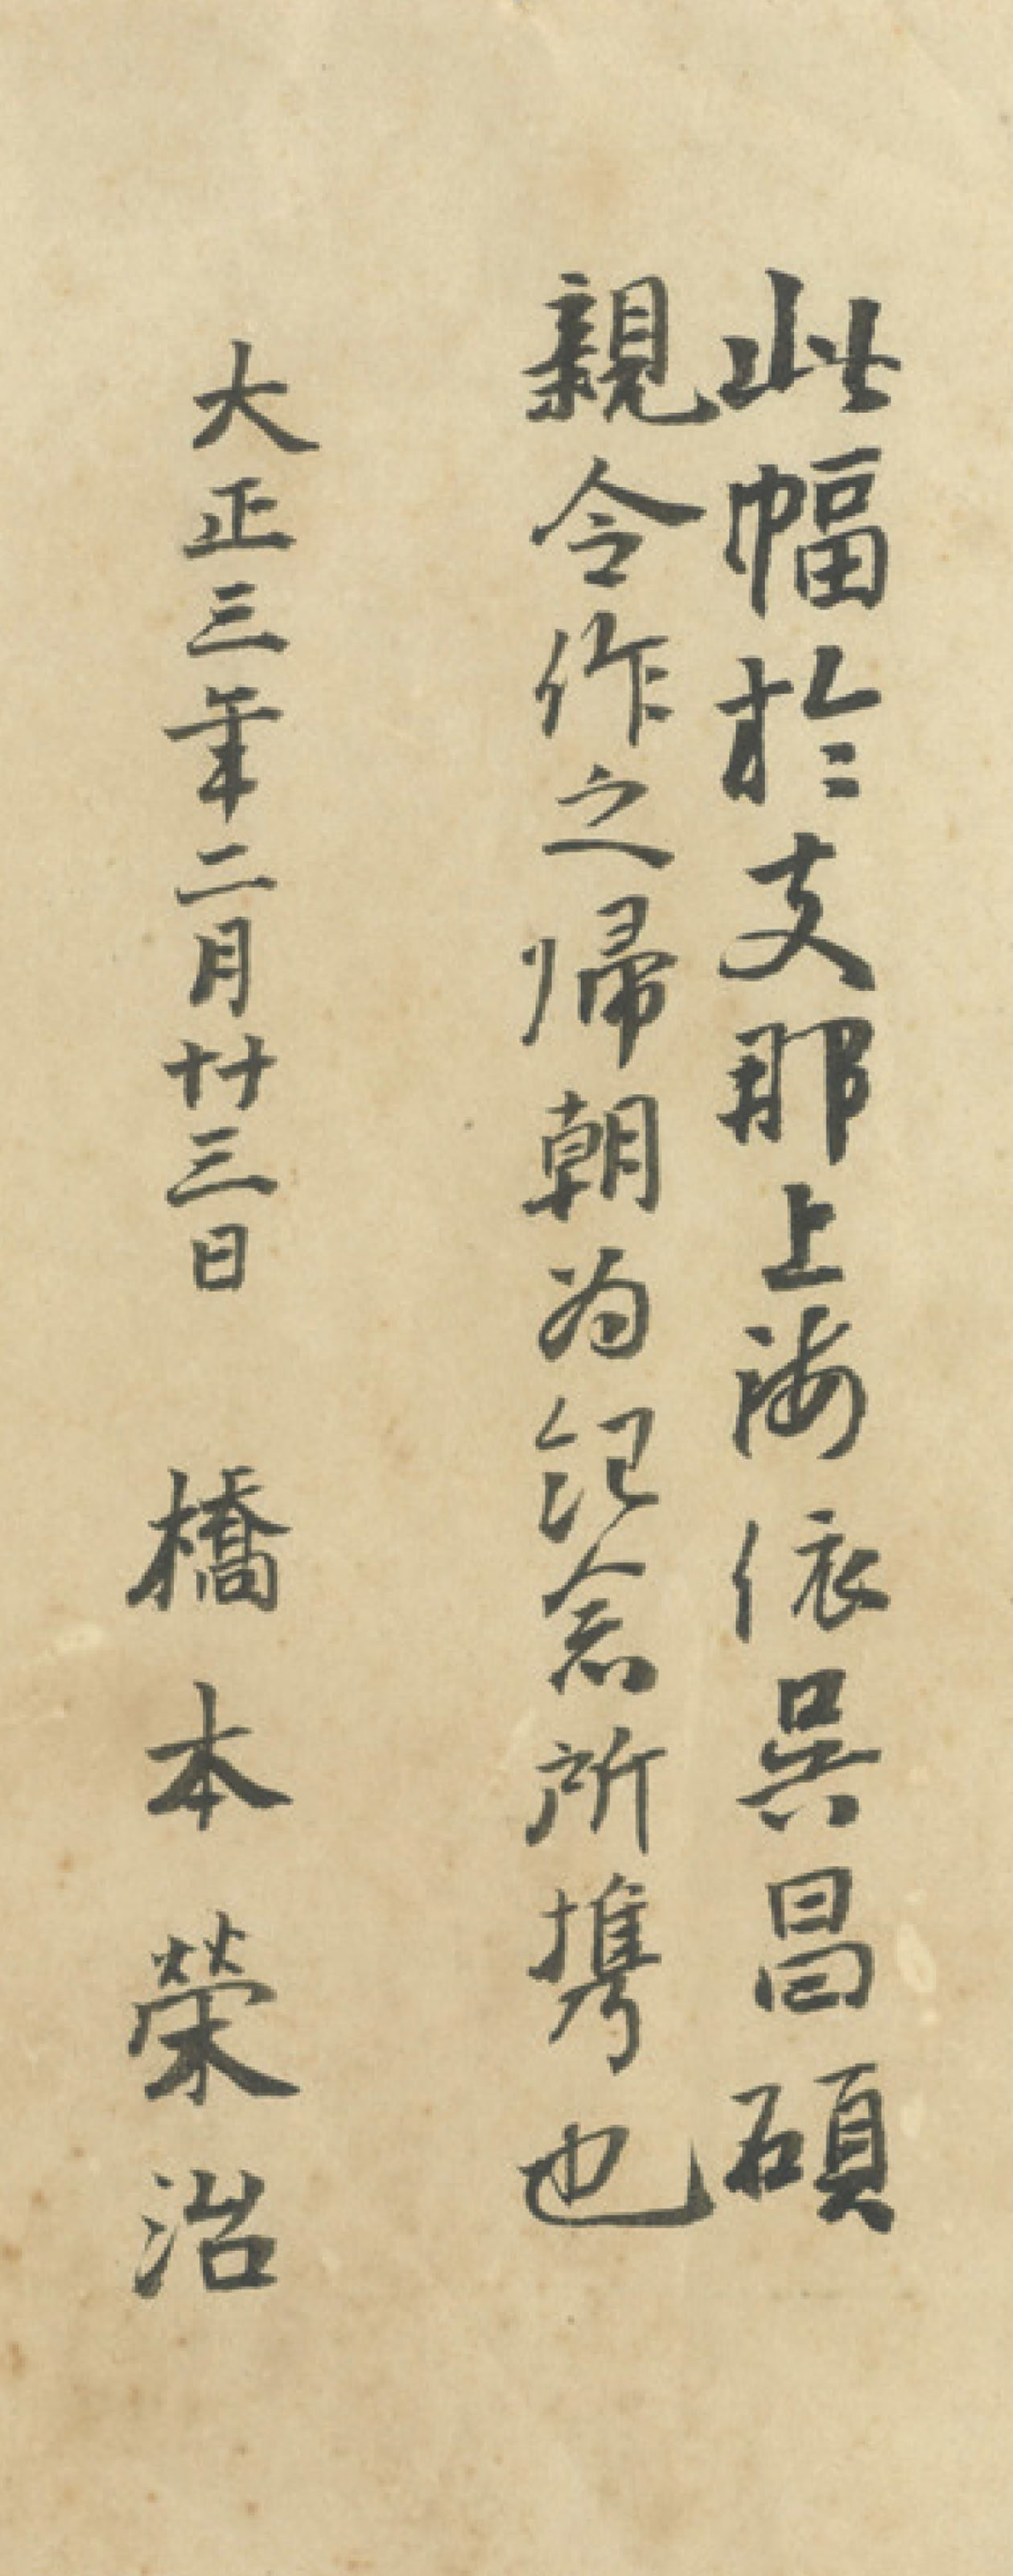 此幅於支那上海依吳昌碩
親令作之帰朝为記念所携也
大正三年二月廿三日 橋本榮治